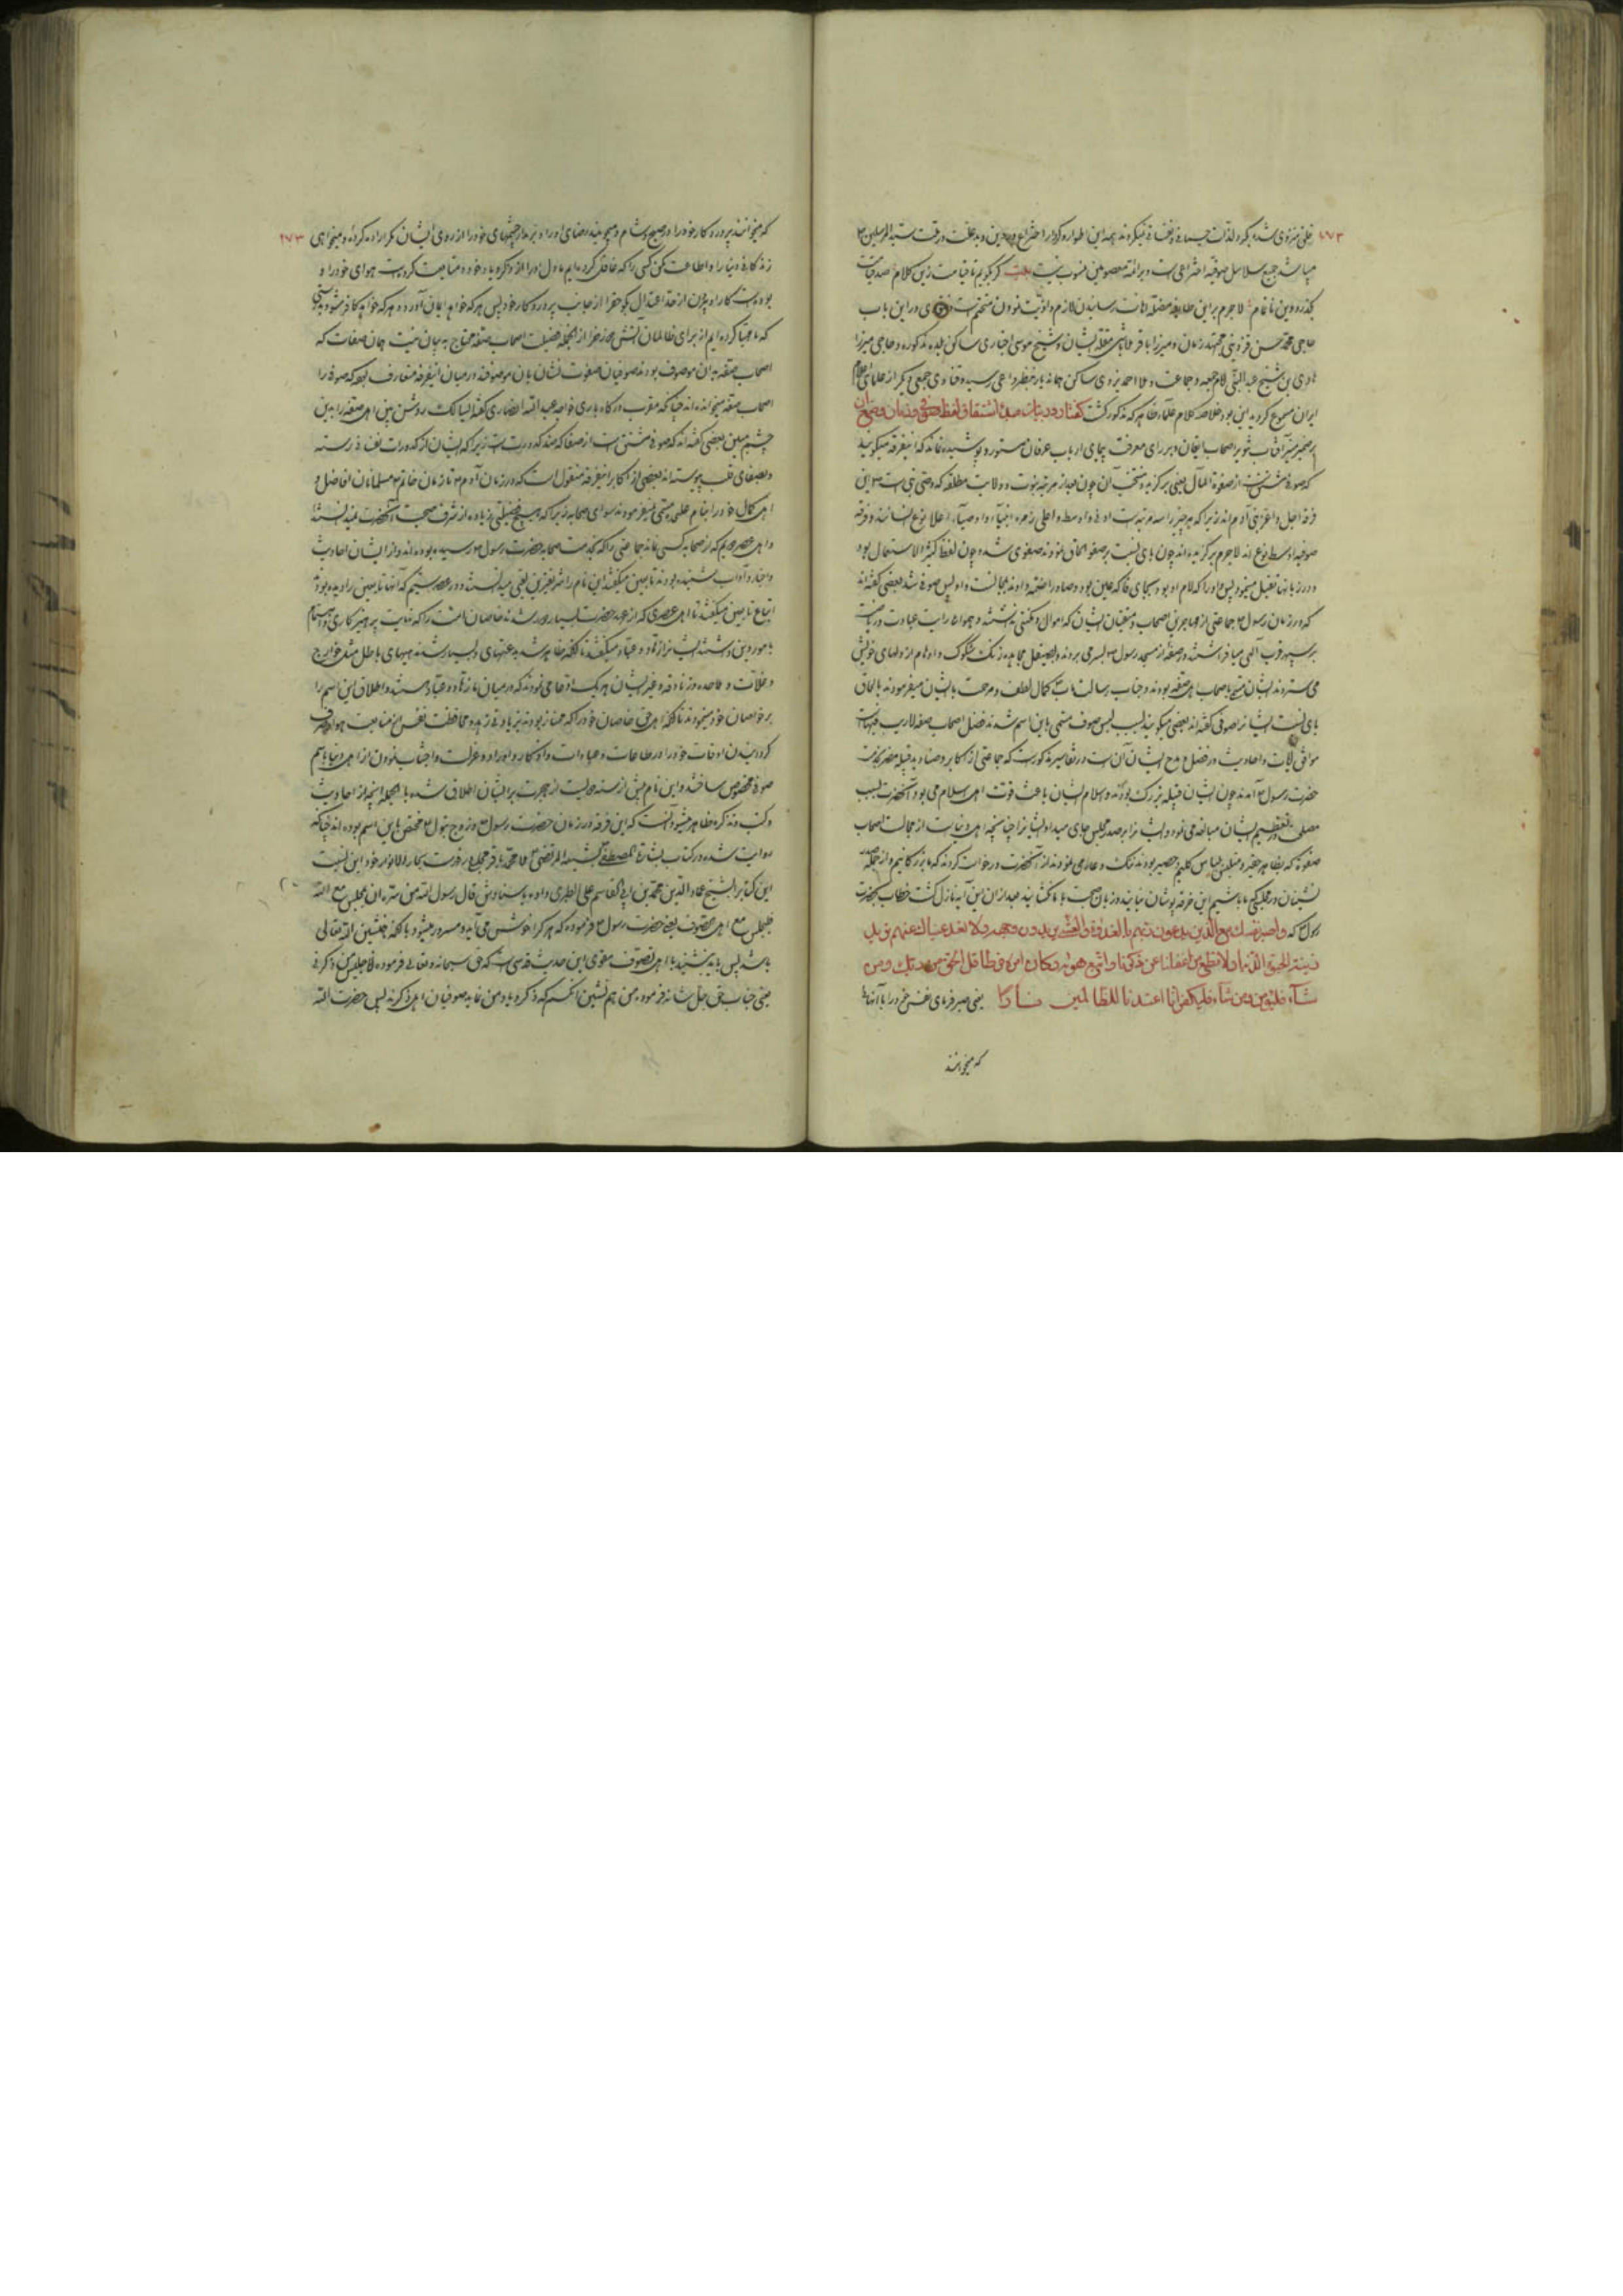 میباشد جمیع سلاسل صوفیه اختراعی است و بر ائمهٔ معصومین منسوب نیست بیت گر بگویم تا قیامت زین کلام صد قیامت
بگذرد وین ناتمام لاجرم بر این طایفهٔ مضله اهانت رسانیدن لازم و اذیت نمودن متحتم است و فتوی در این باب
حاجی محمد حسن قزوینی مجتهد زمان و میرزا باقر و شیخ موسی اخباری ساکن بلده مذکوره و حاجی میرزا
هادی بن شیخ عبد النبی امام جمعه و جماعت و ملا احمد یزدی ساکن بنظر داعی رسید و فتاوی جمعی دیگر از علمای
ایران مسموع گردید این بود خلاصه کلام علماء ظاهر که مذکور گشت گفتار در بیان مبدأ اشتقاق لفظ صوفی و زمان وضع آن
بر ضمیر منیر آفتاب تنویر اصحاب ایقان و بر رای معرفت پیمای ارباب عرفان مستور و پوشیده نماند که اینفرقه میگویند
که صوفی مشتق است از صفوة المال یعنی برگزیده و منتخب آن چون بعد از مرتبه نبوت و ولایت مطلقه که وصی نبی است این
فرقه اجل و اعز بنی آدم‌اند زیرا که هر چیز را سه مرتبه است ادنی و اوسط و اعلی زمره انبیاء و اوصیاء اعلا نوع انسانند و فرقه
صوفیه اوسط نوع‌اند لاجرم برگزیده‌اند چون یای نسبت بر صفو الحاق نمودند صفوی شد و چون لفظ کثیر الاستعمال بود
و در زبانها ثقیل مینمود پس واو را که لام او بود بجای فا که عین بود و صاد را ضمه دادند بمجانست واو پس صوفی شد بعضی گفته‌اند
که در زمان رسول جماعتی از مهاجرین اصحاب و متقیان ایشان که اموال و مکنتی نداشتند و همواره رایت عبادت و ریاضت
بر سپهر قرب الهی می‌افراشتند در صفهٔ از مسجد رسول بسر می‌بردند و بصیقل مجاهده زنگ شکوک و اوهام از دلهای خویش
می‌ستردند ایشان مسمی باصحاب اهل صفه بودند و جناب رسالت مآب کمال لطف و مرحمت با ایشان میفرمودند بالحاق
یای نسبت ایشان را صوفی گفته‌اند بعضی میگویند بسبب لبس صوف مسمی باین اسم شدند فضل اصحاب صفه لاریب فیهاست
موافق آیات و احادیث در فضل و مدح ایشان آن است در تفاسیر مذکور است که جماعتی از اکابر و صنادید قبیله مضر بخدمت
حضرت رسول آمدند چون ایشان قبیله بزرگ بودند و اسلام ایشان باعث قوت اهل اسلام می‌بود آنحضرت بسبب
تعظیم ایشان مبالغه می‌نمود و ایشان را بر صدر مجلس جای میداد ایشان را چنانچه اهل دنیاست از مجالست اصحاب
صفه که بظاهر حقیر و متلبس بلباس کلیم و حصیر بودند ننگ و عار می‌نمودند از آنحضرت درخواست کردند که ما بزرگانیم و از جمله
نشینان در مجلسی که ما باشیم این خرقه پوشان نیایند و زبان صحبت با ما نگشایند بعد از این آیه نازل گشت خطاب بحضرت
رسول که واصبر نفسك مع الذین یدعون ربهم بالغداوة والعشی یریدون وجهه ولا تعد عیناك عنهم ترید
زینة الحیوة الدنیا ولا تطع من اغفلنا قلبه عن ذکرنا واتبع هواه وکان امره فرطا قل الحق من ربك فمن
شآء فلیؤمن ومن شآء فلیکفر انا اعتدنا للظالمین نارا یعنی صبر فرمای نفس خود را با آنها
که میخوانند
که میخوانند پروردگار خود را در صبح و شام و میجویند رضای او را و برمدار چشمهای خود را از روی ایشان مگر اراده کرده و میخواهی ۲۷۳
زندگانی دنیا را و اطاعت مکن کسی را که غافل کرده‌ایم ما دل او را از ذکر و یاد خود و متابعت کرده است هوای خود را و
بوده است کار او بیرون از حد اعتدال بگو حق را از جانب پروردگار خود پس هر که خواهد ایمان آورد و هر که خواهد کافر شود
که ما مهیا کرده‌ایم از برای ظالمان آتش فضیلت اصحاب صفه محتاج به بیان نیست همان صفات که
اصحاب صفه به آن موصوف بودند صوفیان صفوت نشان بآن موصوفند در میان اینفرقه متعارف بود که صوفی را
اصحاب صفه میخوانده‌اند چنانکه مقرب درگاه باری خواجه عبد الله انصاری گفته ای سالک روشن بین اهل صفه را به بین
چشم مبین بعضی گفته‌اند که صوفی مشتق است از صفا که ضد کدورت است زیرا که ایشان از کدورات نفسانی رسته
و بصفای قلب پیوسته‌اند بعضی از اکابر اینفرقه منقول است که در زمان آدم تا زمان خاتم مسلمانان افاضل و
اهل کمال خود را بنام علی مسمی نمیفرمودند سوای صحابه زیرا که هیچ فضیلتی زیاده از شرف صحبت آنحضرت نمیدانستند
و اهل عصر دویم که از صحابه کسی نماند جماعتی را که بخدمت صحابه حضرت رسول رسیده بوده‌اند و از ایشان احادیث
و اخبار و آداب شنیده بودند تابعین میگفتند این نام را شریفترین لقبی میدانستند و در عصر سیم که آنها تابعین را دیده بودند
اتباع تابعین میگفتند تا اهل عصری که از عهد حضرت بسیار دور شدند خاصان امت را که نهایت پرهیزکاری و اهتمام
بامور دین داشتند ایشان را زهاد و عباد میگفتند تا آنکه ظاهر شد بدعتهای بسیار شد مذهبهای باطل مثل خوارج
و غلات و ملاحده و زنادقه و غیر ایشان هر یک ادعا می‌نمودند که در میان ما زهاد و عباد هستند و اطلاق این اسم را
بر خواصان خود مینمودند تا آنکه اهل حق خاصان خود را که ممتاز بودند بزیادتی زهد و محافظت نفس از متابعت هوا و صرف
کردن اوقات خود را در طاعات و عبادات و اذکار و اوراد و عزلت و اجتناب نمودن از اهل دنیا باسم
صوفی مخصوص ساختند و این نام پیش از سنه دویست از هجرت بر ایشان اطلاق شده بالجمله آنچه از احادیث
و کتب و تذکره ظاهر میشود آنست که این فرقه در زمان حضرت رسول و زوج بتول مختص باین اسم بوده‌اند چنانکه
روایت شده در کتاب بشارة المصطفی لشیعة المرتضی ملا محمد باقر مجلسی در فهرست بحار الانوار خود این نسبت
این کتاب را بشیخ عماد الدین محمد بن ابی القاسم علی الطبری داده باسنادش قال رسول الله من سره ان یجلس مع الله
فلیجلس مع اهل التصوف یعنی حضرت رسول فرموده که هر که را خوش می‌آید و مسرور میشود بآنکه همنشین الله تعالی
باشد پس باید بنشیند با اهل تصوف مقوی این حدیث قدسی است که حق سبحانه و تعالی فرموده انا جلیس من ذکرنی
یعنی جناب حق جل شانه فرموده من هم نشین آنکسم که ذکر و یاد من نماید صوفیان اهل ذکرند پس حضرت الله